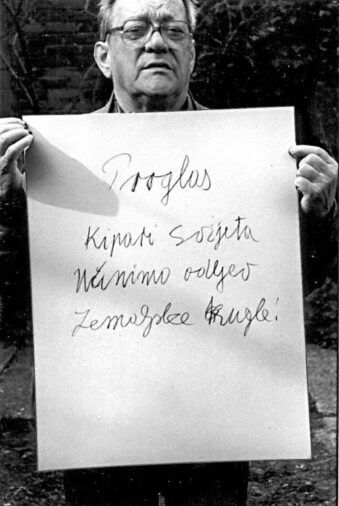 Proglas
Kipari Svijeta
Učinimo odljev
Zemaljske Kugle!